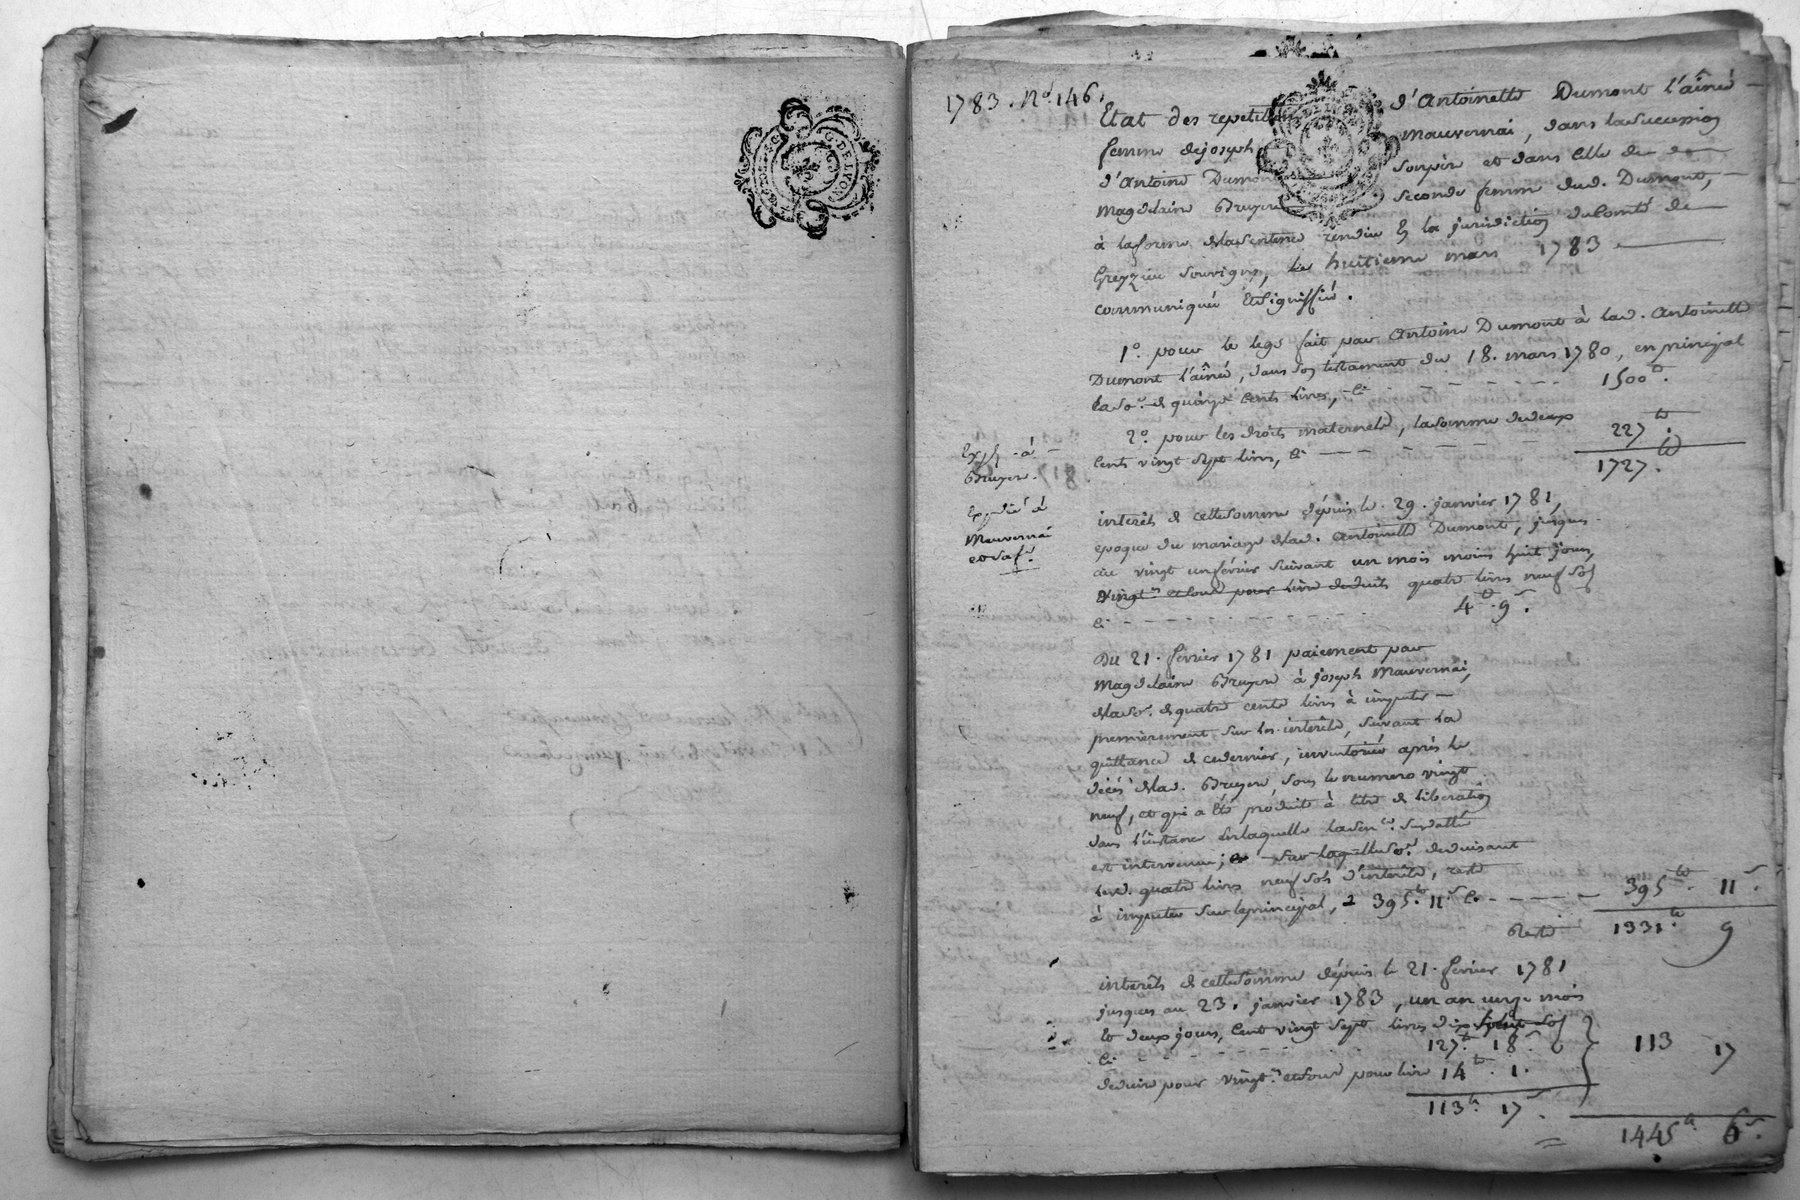 G. DE LYON
1783. No. 146.
Etat des repetitions d'Antoinette Dumont l'aînée
femme de joseph Mauvernai, dans la succession
d'Antoine Dumont son pere et dans celle de
Magdelaine Bruyere seconde femme dud. Dumont,
à la forme de la sentence rendue en la jurisdiction du Comté de
Grezzieu souvigny, le huitieme mars 1783
communiqué et signiffié.
1o. pour le legs fait par Antoine Dumont à lad. Antoinette
Dumont l'aînée, dans son testament du 18. mars 1780, en principal
la so.e de quinze cents livres, ci 1500tt.
2o. pour les droits maternels, la somme de deux
cents vingt sept livres, ci 227tt.
1727.tt
à
Bruyere.
Expedié à
Mauvernai
et sa fe.
interêts de cette somme dépuis le 29. janvier 1781,
epoque du mariage de lad. Antoinette Dumont, jusques
au vingt un fevrier suivant un mois moins huit jours,
vingt.e et sous pour livre deduits quatre livres neuf sols
ci 4tt. 9s.
Du 21. fevrier 1781 paiement par
Magdelaine Bruyere à joseph Mauvernai,
de la so.e de quatre cents livres à imputer
premierement sur les interêts, suivant la
quittance de ce dernier, inventoriée après le
décès de lad. Bruyere, sous le numero vingt
neuf, et qui a été produite à titre de liberation
dans l'instance en laquelle la sen.ce susdatée
est intervenue; sur laquelle so.e deduisant
lesd. quatre livres neuf sols d'interêts, reste
à imputer sur le principal, 395.tt 11s ci 395tt. 11s.
Reste 1331.tt 9
interêts de cette somme dépuis le 21. fevrier 1781
jusques au 23. janvier 1783, un an onze mois
et deux jours, cent vingt sept livres dix huit sols
ci 127.tt 18s
deduire pour vingt.e et sous pour livre 14tt. 1. 113 17
113tt. 17s.
1445tt 6s.